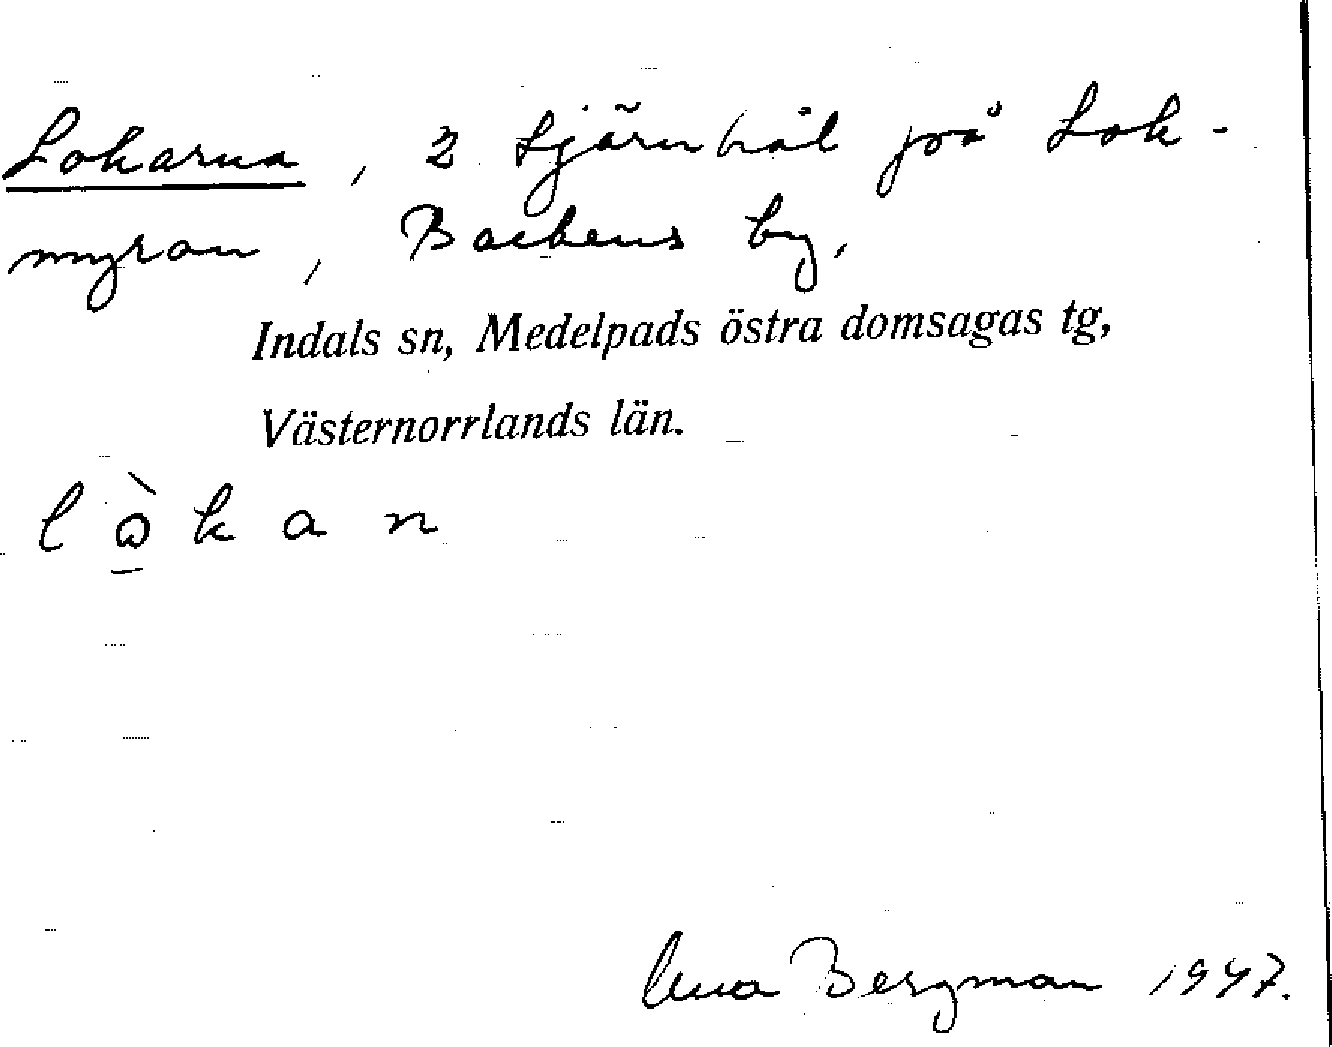 Lokarna, 2 tjärnhål på Lok-
myran, Backens by.
Indals sn, Medelpads östra domsagas tg,
Västernorrlands län.
l ò̠ k a n
Anna Bergman 1947.